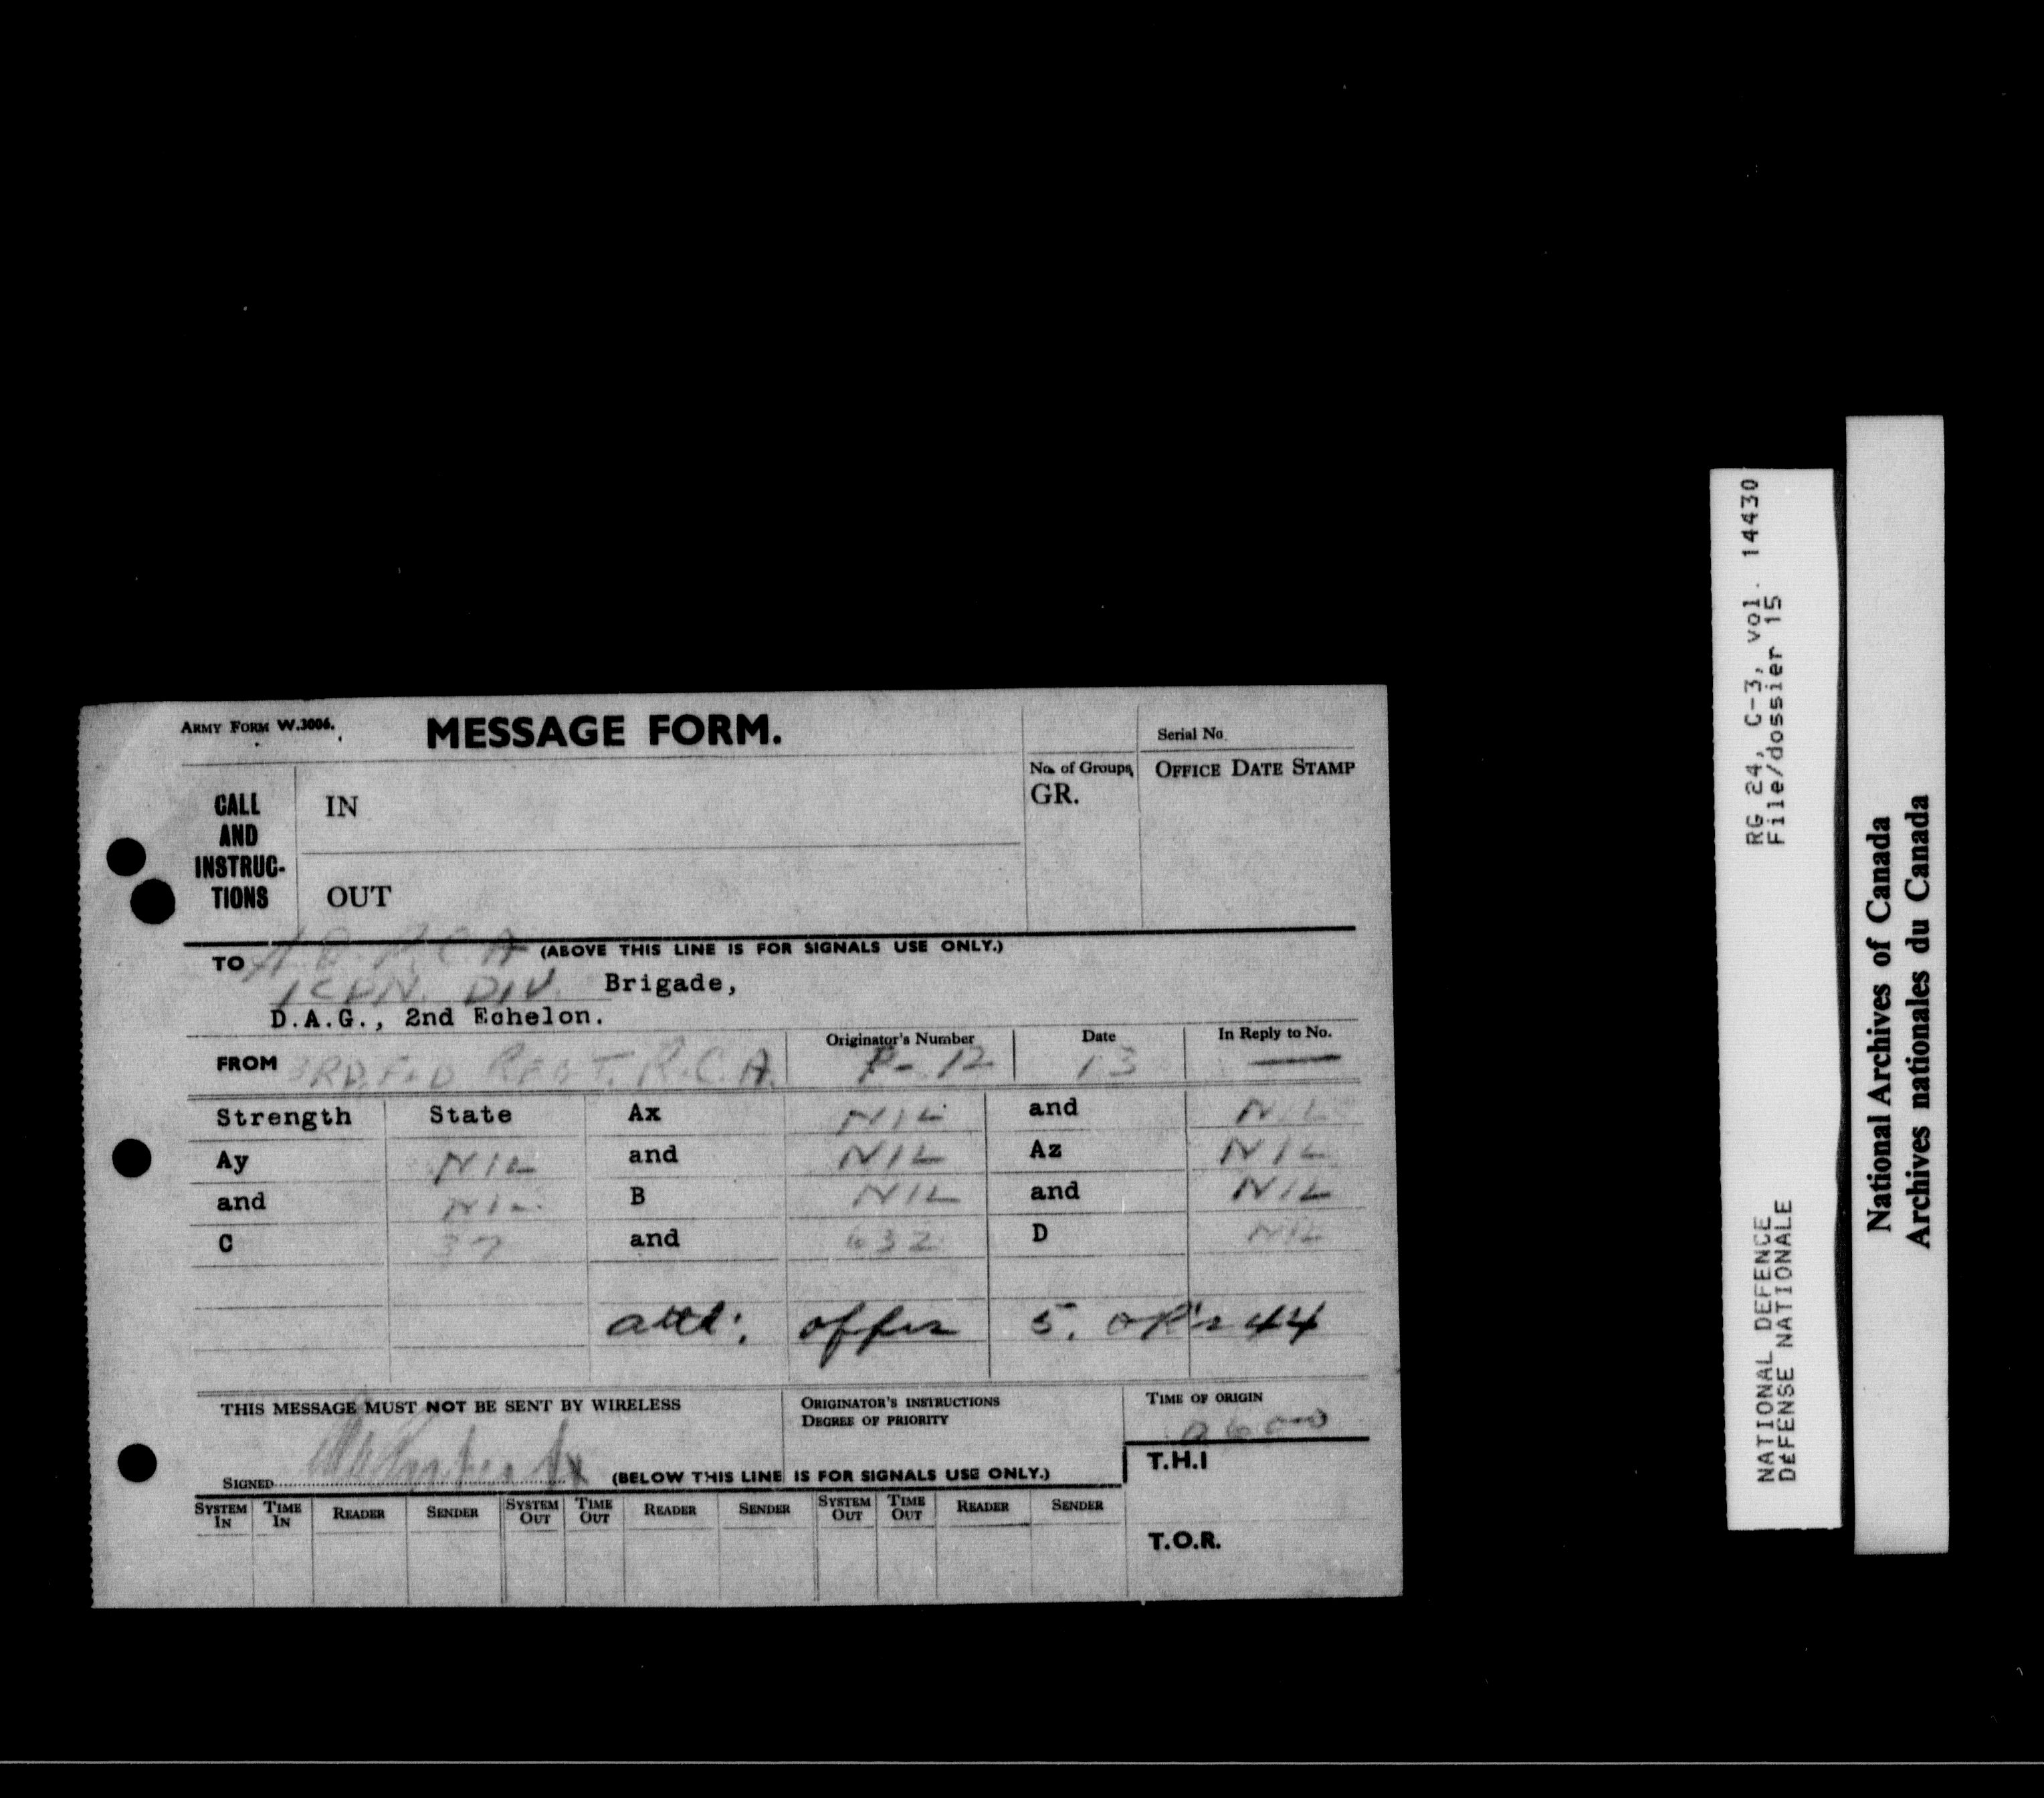 ARMY FORM W.3006.
MESSAGE FORM.
Serial No.
CALL AND INSTRUC-TIONS
IN
OUT
No. of Groups
GR.
OFFICE DATE STAMP
(ABOVE THIS LINE IS FOR SIGNALS USE ONLY.)
TO R.C.A
1 CDN. DIV. Brigade,
D.A.G., 2nd Echelon.
FROM 3RD. FD REGT. R.C.A.
Originator's Number P-12
Date 13
In Reply to No. —
Strength State Ax NIL and NIL
Ay NIL and NIL Az NIL
and NIL B NIL and NIL
C 37 and 632 D NIL
attd: offrs 5. OR's 44
THIS MESSAGE MUST NOT BE SENT BY WIRELESS
ORIGINATOR'S INSTRUCTIONS
DEGREE OF PRIORITY
TIME OF ORIGIN
0600
SIGNED
(BELOW THIS LINE IS FOR SIGNALS USE ONLY.)
T.H.I
SYSTEM IN TIME IN READER SENDER SYSTEM OUT TIME OUT READER SENDER SYSTEM OUT TIME OUT READER SENDER
T.O.R.
RG 24, C-3, vol. 14430
File/dossier 15
NATIONAL DEFENCE
DÉFENSE NATIONALE
National Archives of Canada
Archives nationales du Canada